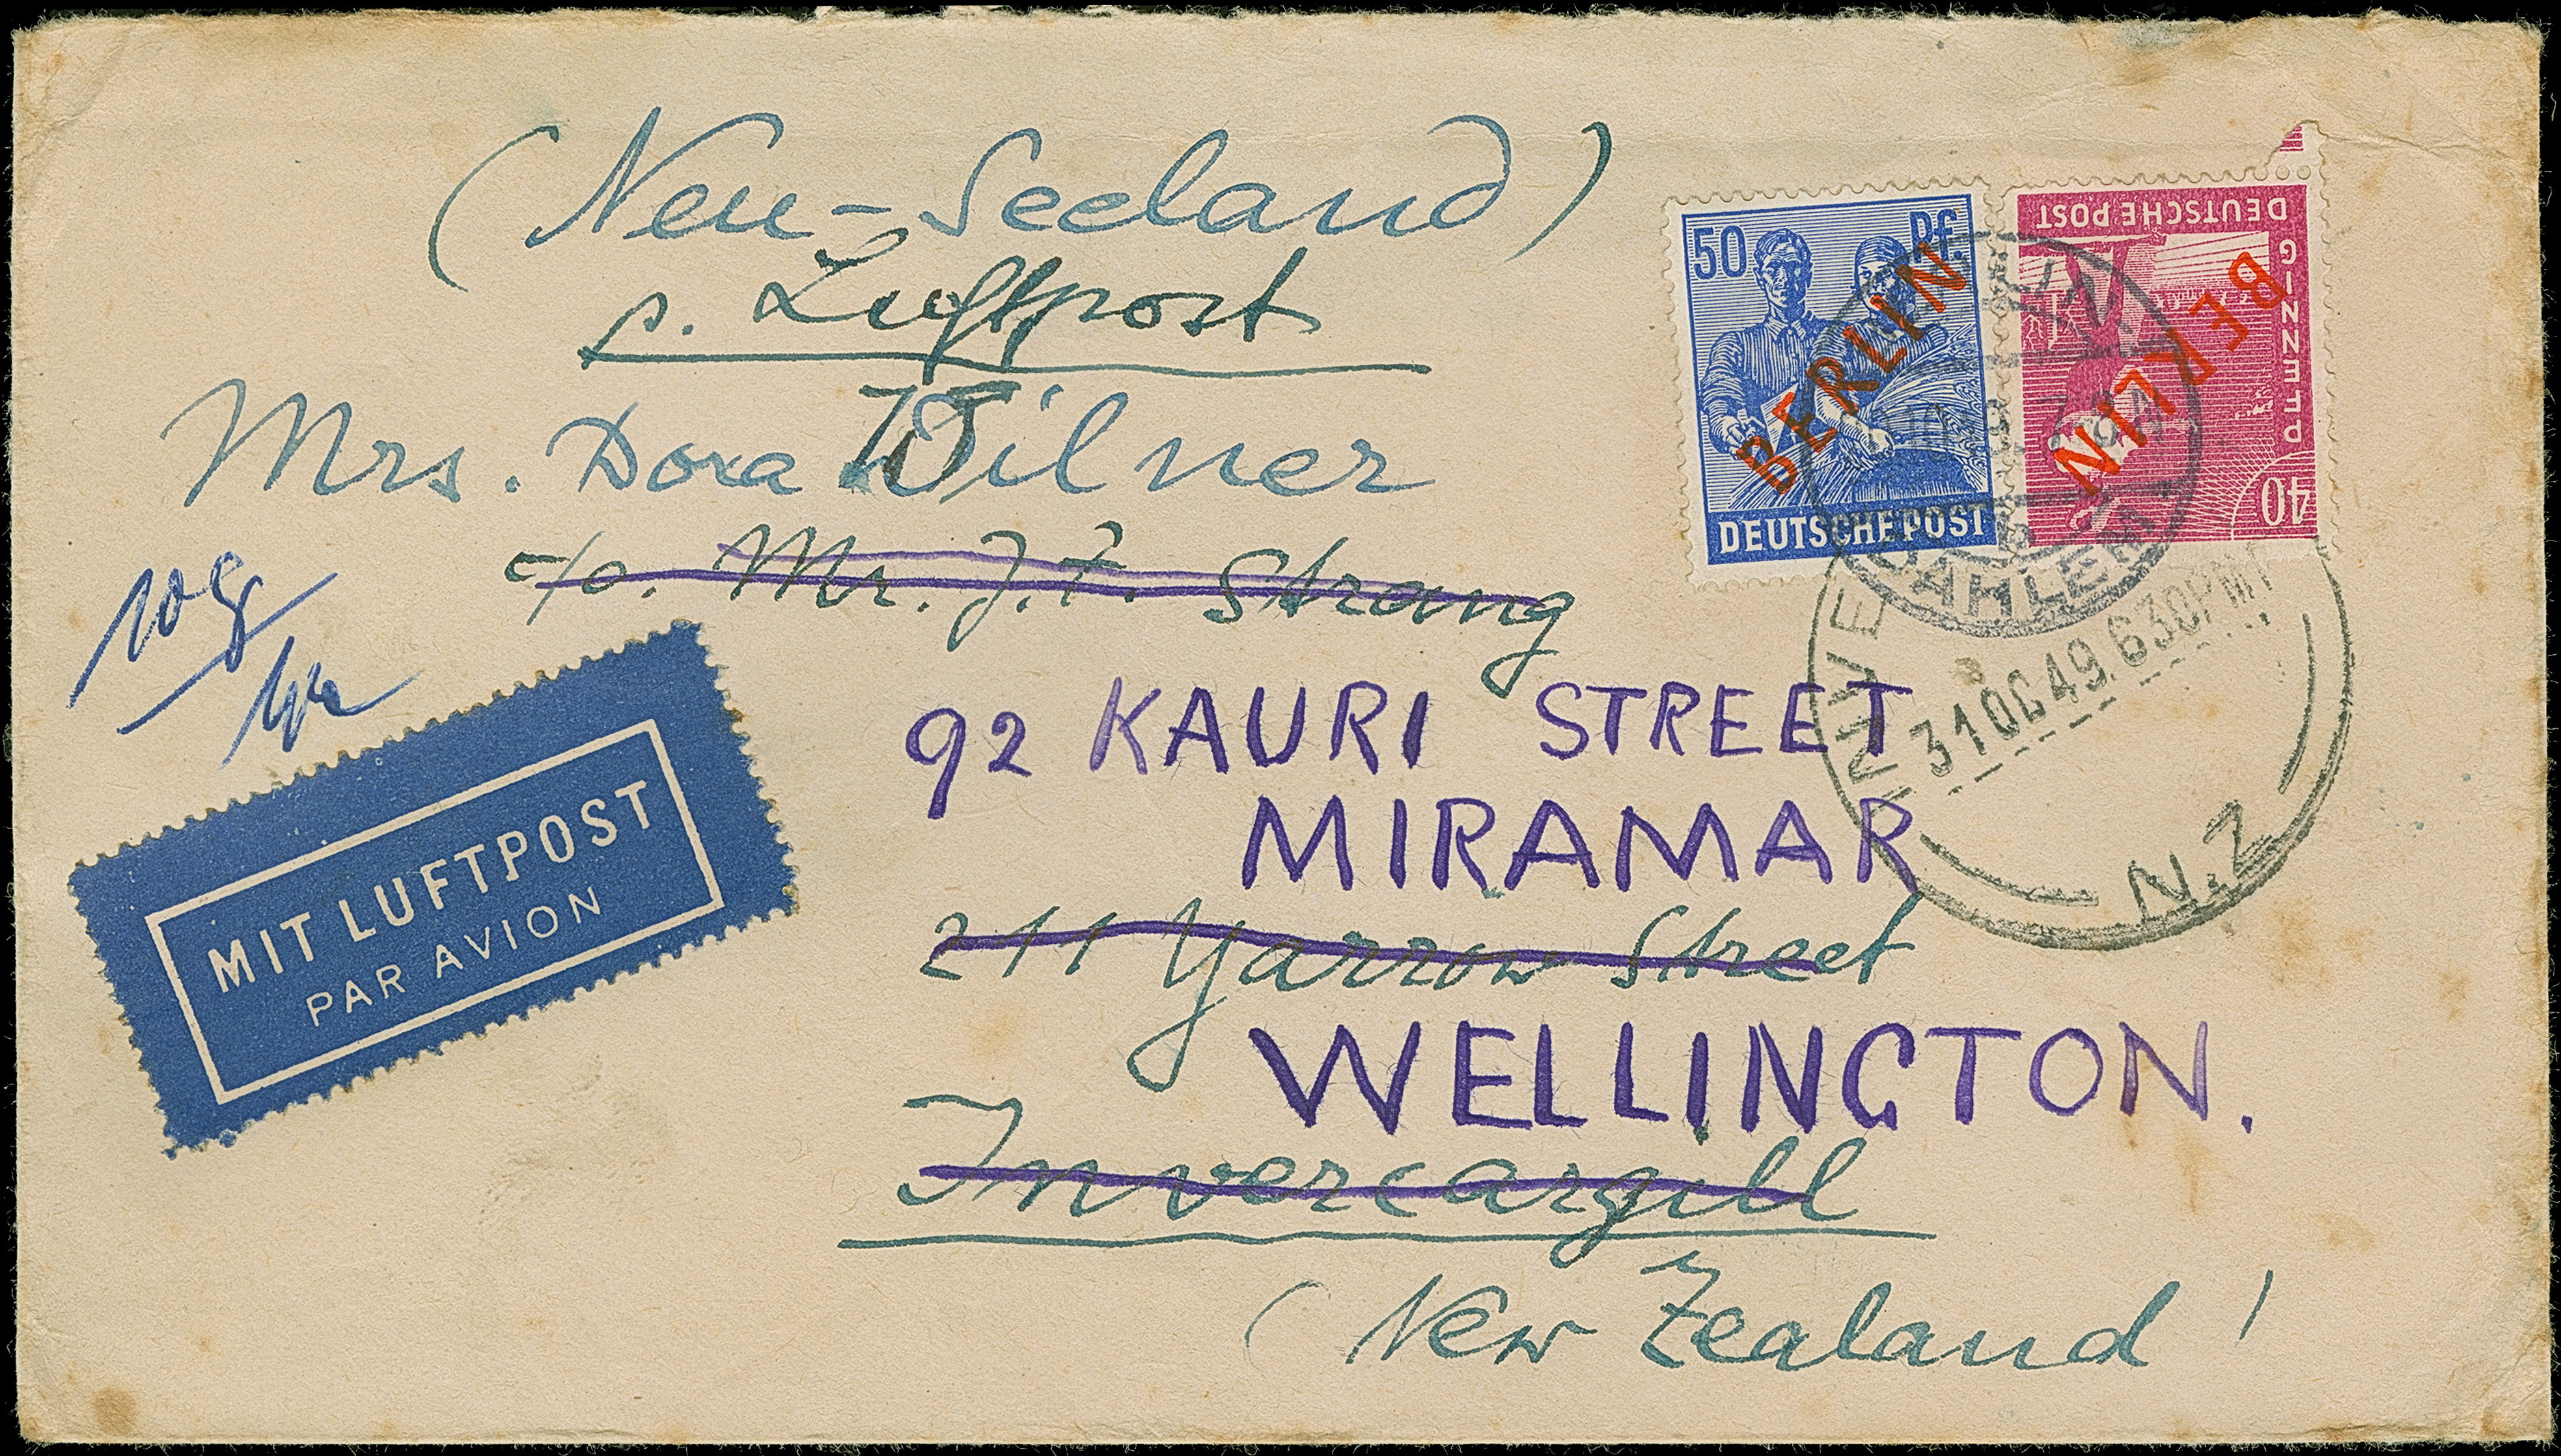 (Neu-Seeland)
p. Luftpost
Mrs. Dora Wilner
c/o. Mr. J. F. Strang
92 KAURI STREET
MIRAMAR
211 Yarrow Street
WELLINGTON.
Invercargill
(New Zealand)
10g
MIT LUFTPOST
PAR AVION
50 Pf.
BERLIN
DEUTSCHE POST
DEUTSCHE POST
PFENNIG
40
BERLIN
BERLIN
DAHLEM
INVE
31 OC 49. 630PM
N.Z